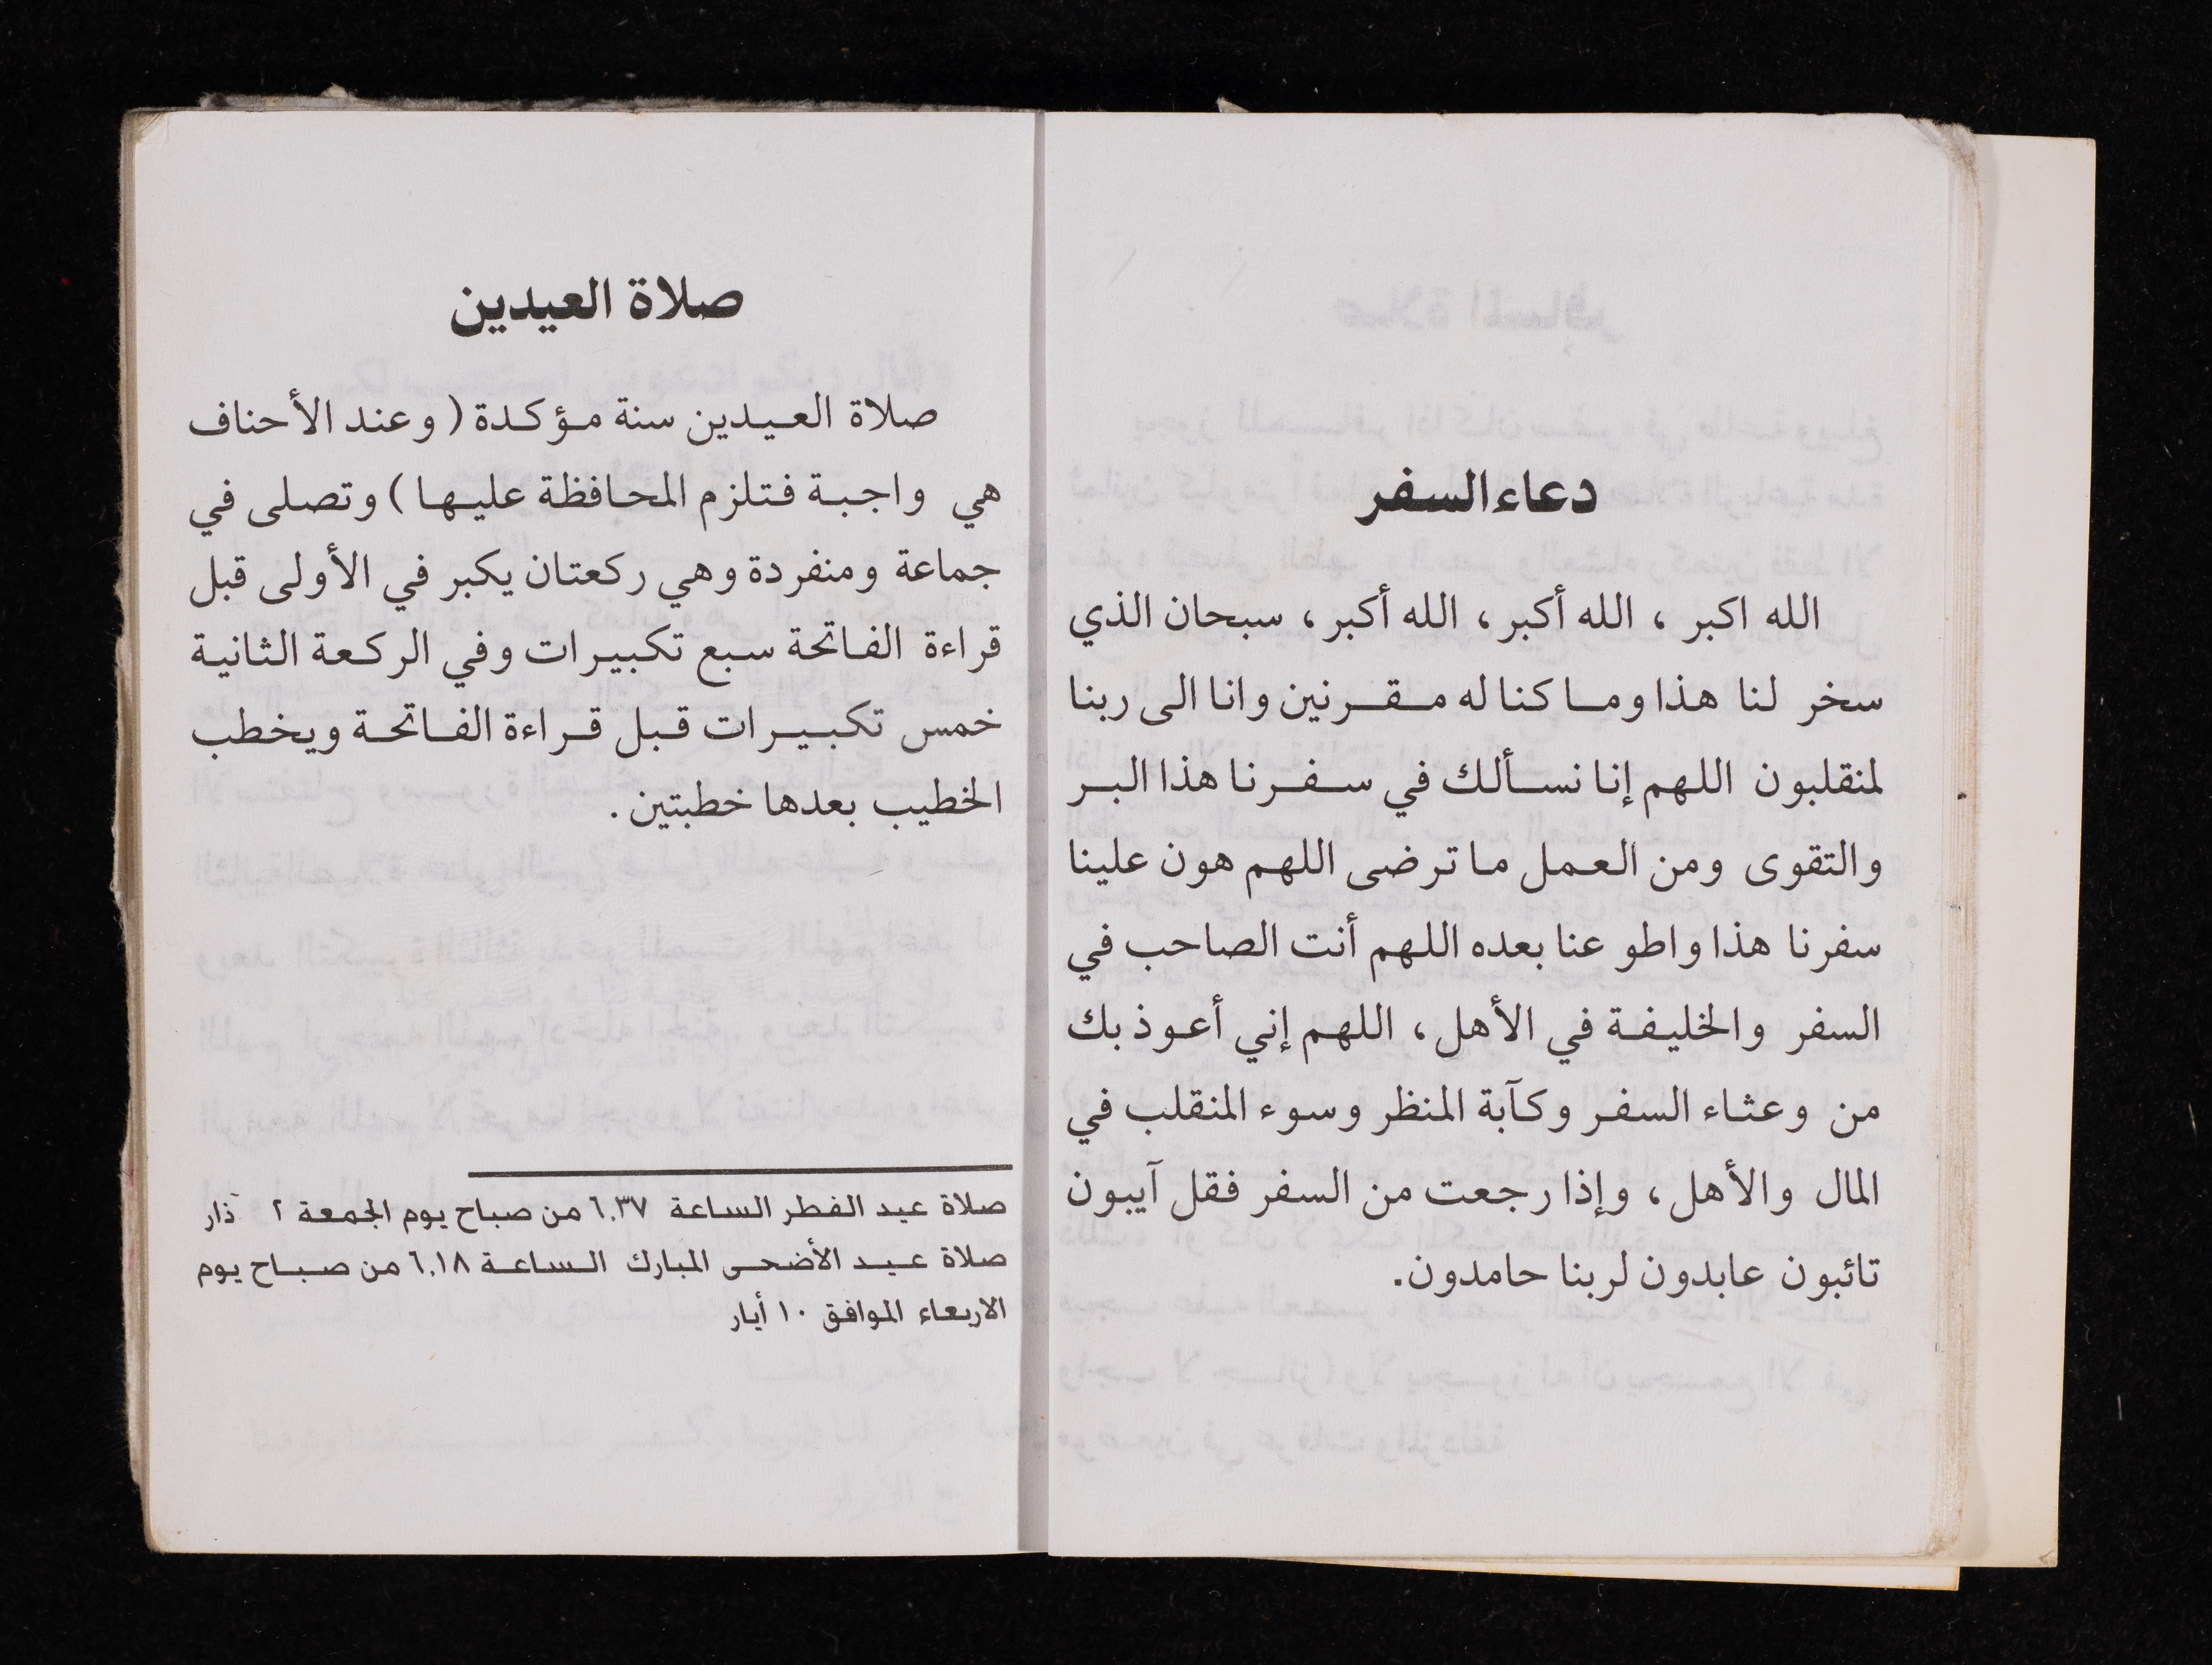 دعاء السفر
الله اكبر ، الله أكبر ، الله أكبر ، سبحان الذي
سخر لنا هذا وما كنا له مقرنين وانا الى ربنا
لمنقلبون اللهم إنا نسألك في سفرنا هذا البر
والتقوى ومن العمل ما ترضى اللهم هون علينا
سفرنا هذا واطو عنا بعده اللهم أنت الصاحب في
السفر والخليفة في الأهل ، اللهم إني أعوذ بك
من وعثاء السفر وكآبة المنظر وسوء المنقلب في
المال والأهل ، وإذا رجعت من السفر فقل آيبون
تائبون عابدون لربنا حامدون.
صلاة العيدين
صلاة العيدين سنة مؤكدة ( وعند الأحناف
هي واجبة فتلزم المحافظة عليها ) وتصلى في
جماعة ومنفردة وهي ركعتان يكبر في الأولى قبل
قراءة الفاتحة سبع تكبيرات وفي الركعة الثانية
خمس تكبيرات قبل قراءة الفاتحة ويخطب
الخطيب بعدها خطبتين .
صلاة عيد الفطر الساعة ٦.٣٧ من صباح يوم الجمعة ٢ ذار
صلاة عيد الأضحى المبارك الساعة ٦.١٨ من صباح يوم
الاربعاء الموافق ١٠ أيار